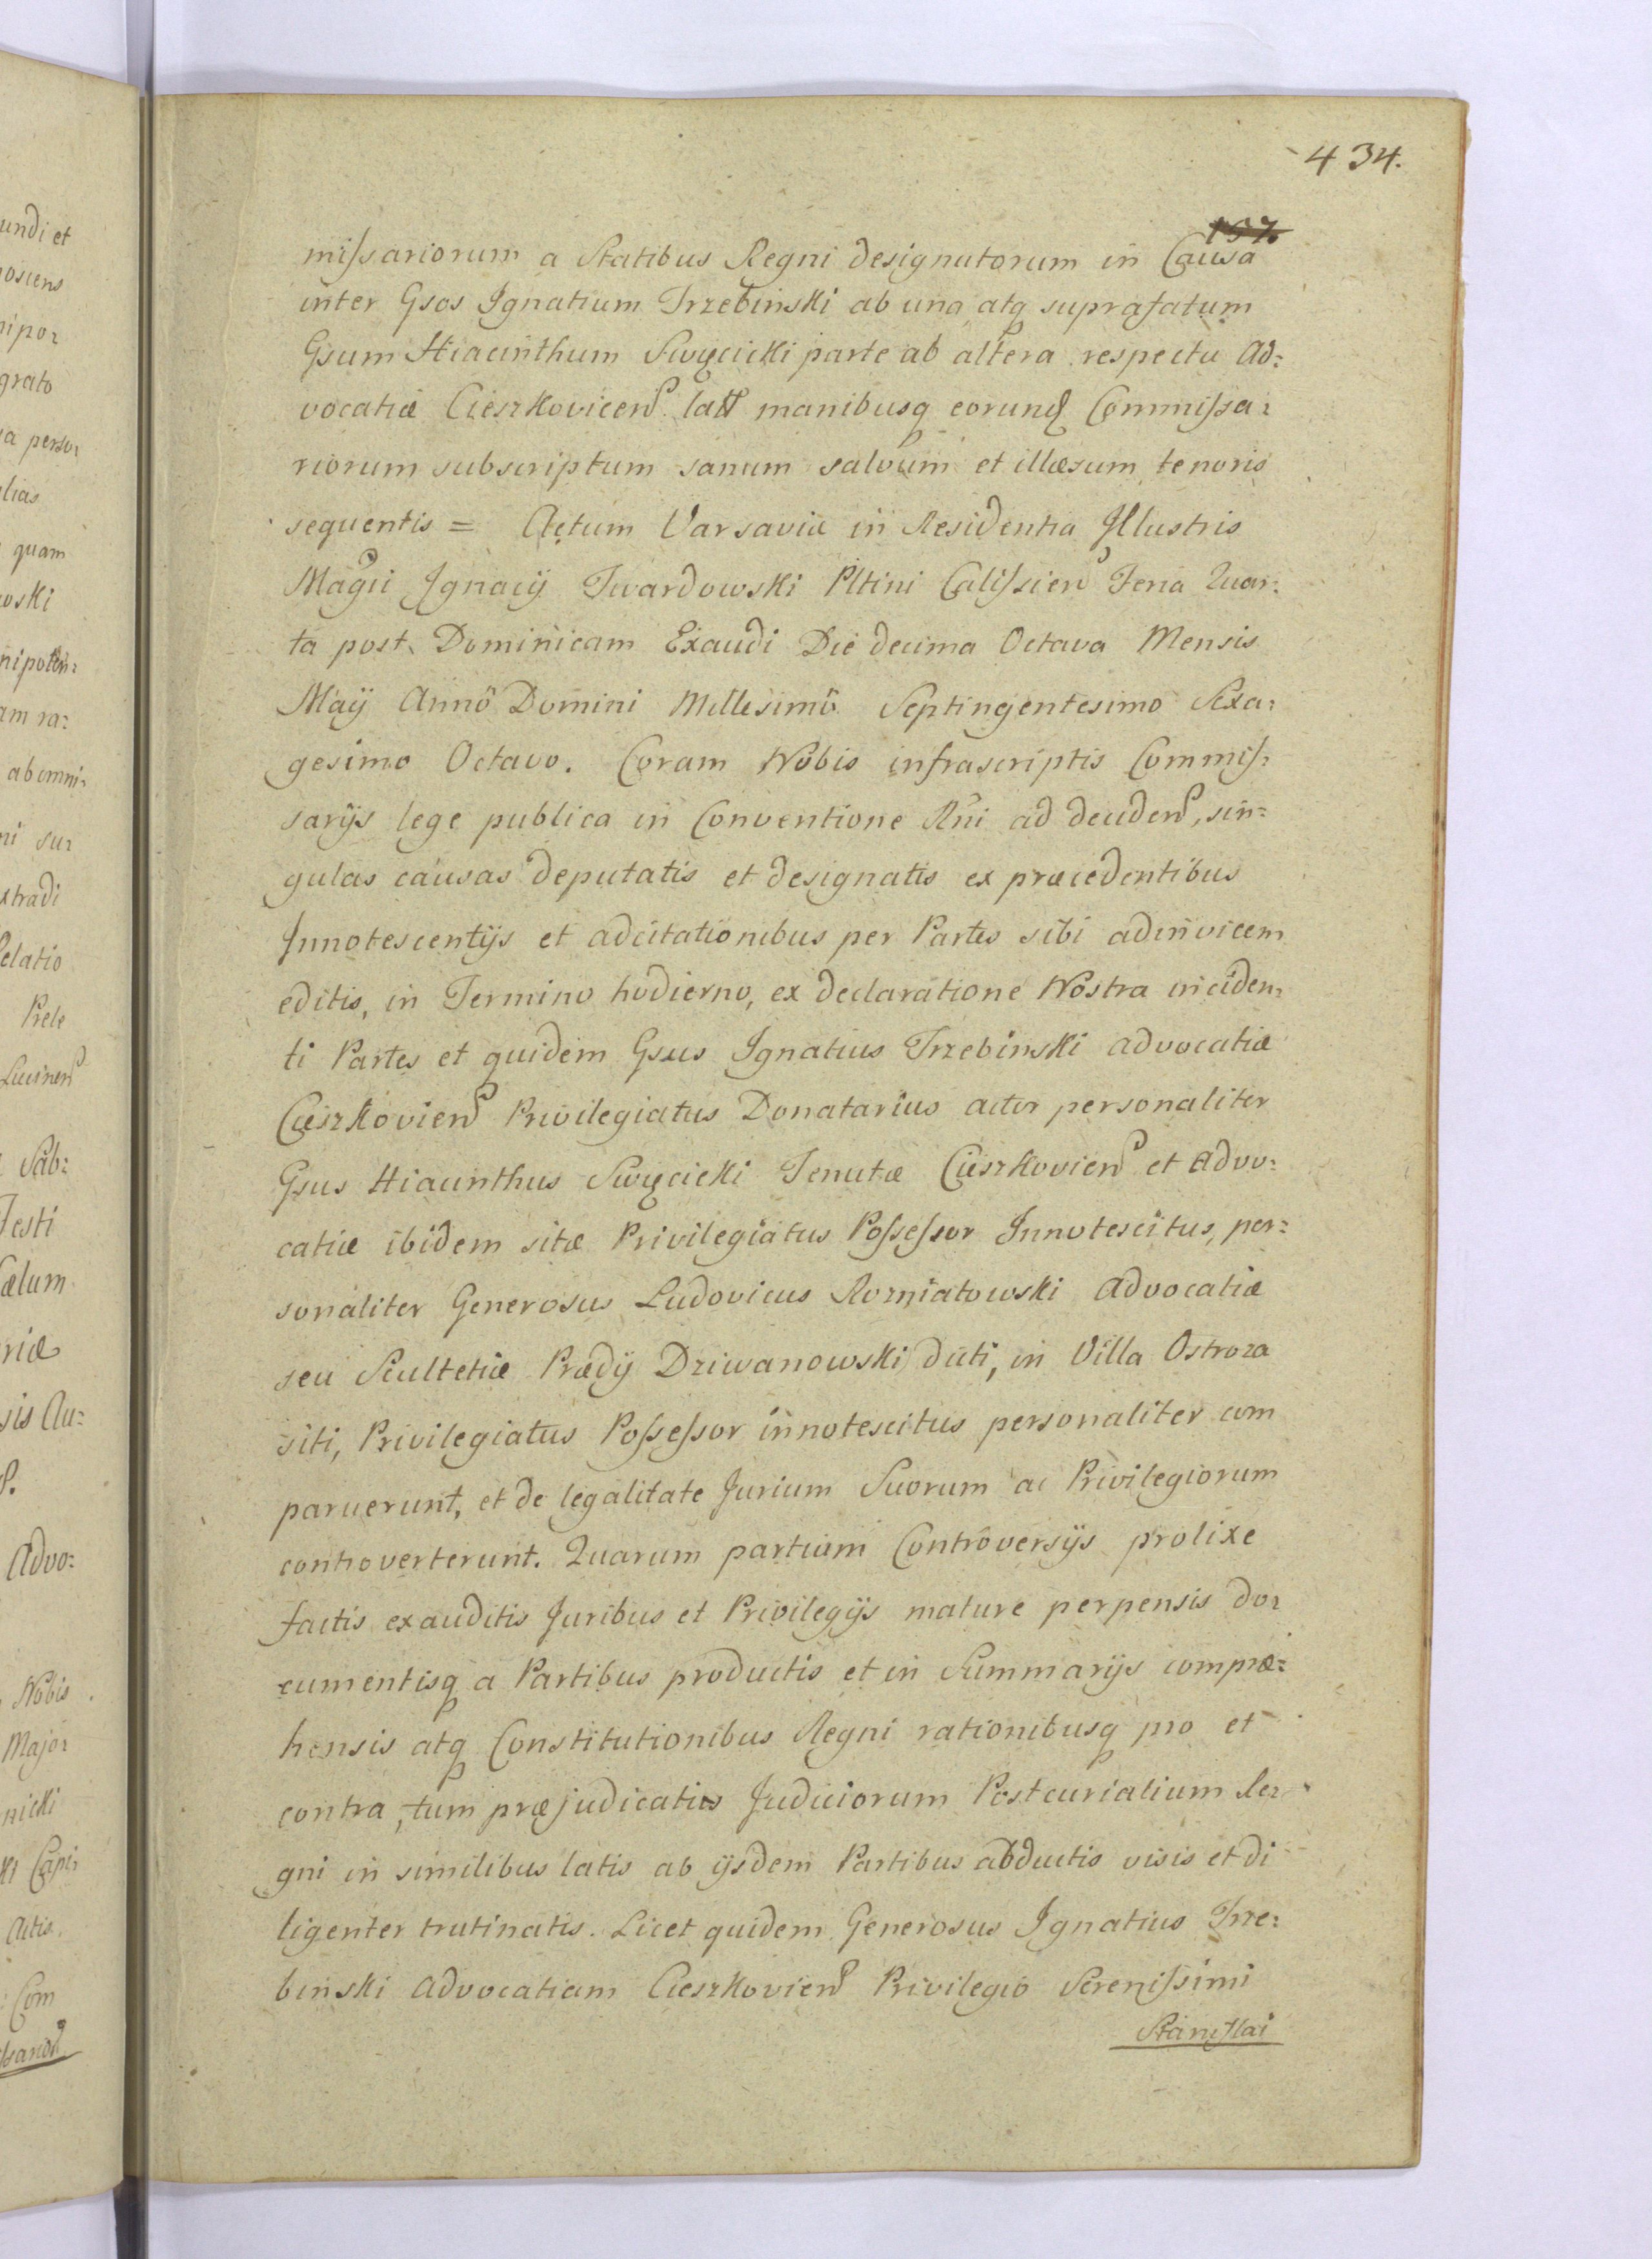 434.
197.
missariorum a Statibus Regni designatorum in Causa
inter Gsos Ignatium Trzebinski ab una atq supra fatum
Gsum Hiacinthum Swięcicki parte ab altera respectu Ad:
vocatiæ Cieszkovicen latt manibusq eorund Commissa:
riorum subscriptum sanum salvum et illæsum, tenoris
sequentis = Actum Varsaviæ in Residentia Illustris
Magci Ignacij Twardowski Pltini Calissien Feria Quar:
ta post Dominicam Exaudi Die decima Octava Mensis
Maij Anno Domini Millesimo Septingentesimo Sexa:
gesimo Octavo. Coram Nobis infrascriptis Commis:
sarijs lege publica in Conventione Rni ad deciden, sin:
gulas causas deputatis et designatis ex præcedentibus
Innotescentijs et adcitationibus per Partes sibi adinvicem
editis, in Termino hodierno, ex declaratione Nostra inciden:
ti Partes et quidem Gsus Ignatius Trzebinski advocatiæ
Cieszkovien Privilegiatus Donatarius actor personaliter
Gsus Hiacinthus Swięcicki Tenutæ Cieszkovien et advo:
catiæ ibidem sitæ Privilegiatus Possessor Innotescitus, per:
sonaliter Generosus Ludovicus Rozniatowski Advocatiæ
seu Scultetiæ Prædij Dziwanowski dicti, in Villa Ostroza
siti, Privilegiatus Possessor innotescitus personaliter com
paruerunt, et de legalitate Jurium Suorum ac Privilegiorum
controverterunt. Quarum partium Controversijs prolixe
factis exauditis Juribus et Privilegijs mature perpensis do:
cumentisq a Partibus productis et in Summarijs compræ:
hensis atq Constitutionibus Regni rationibusq pro et
contra, tum præjudicatis Judiciorum Postcurialium Re:
gni in similibus latis ab ijsdem Partibus abductis visis et di
ligenter trutinatis. Licet quidem Generosus Ignatius Trze:
binski Advocatiam Cieszkovien Privilegio Serenissimi
Stanislai